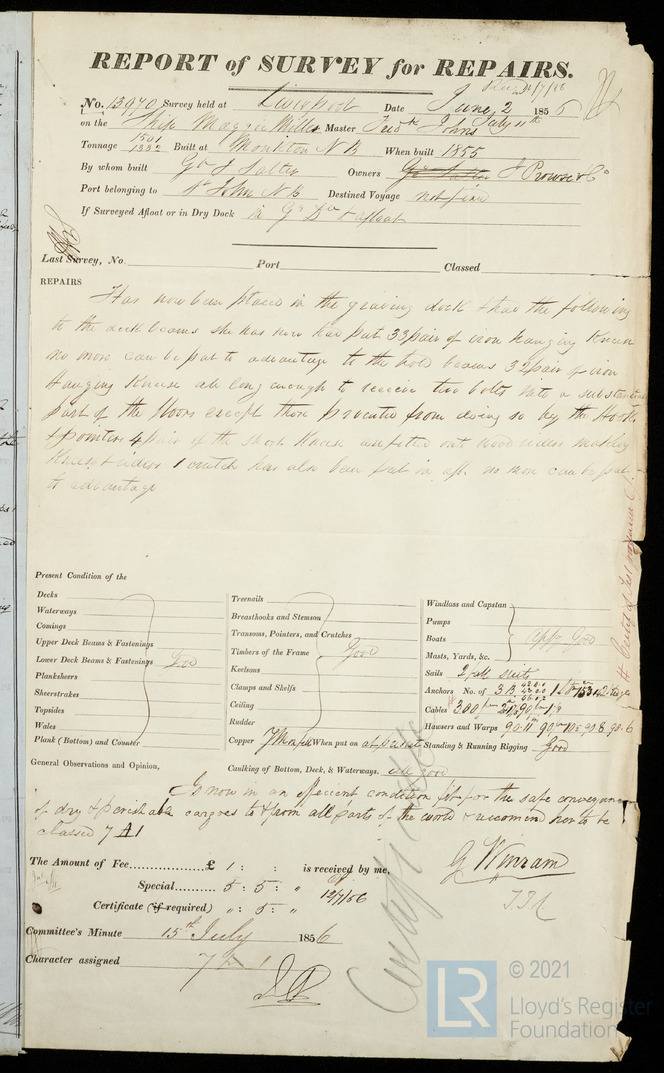 REPORT of SURVEY for REPAIRS.
No. 13970 Survey held at Liverpool Date June 2 1856
July 11th
on the Ship Maggie Miller Master Fredk Johns
Tonnage 1501 1332 Built at Monkton N B When built 1855
By whom built Go J Salter Owners J Prowse & Co
Port belonging to St John N B Destined Voyage not fixed
If Surveyed Afloat or in Dry Dock in Gg Dk & afloat
Last Survey, No. Port Classed
REPAIRS
Has now been placed in the graving dock & had the following
to the deck beams she has now had put 33 pair of iron hanging knees
no more can be put to advantage to the hold beams 32 pair of iron
Hanging Knees all long enough to receive two bolts into a substantial
part of the floors except those prevented from doing so by the Hooks
& pointers 4 pair of the short Knees are fitted onto wood riders making
Knees & riders 1 crutch has also been put in aft no more can be put
to advantage
Present Condition of the
Decks
Waterways
Comings
Upper Deck Beams & Fastenings
Lower Deck Beams & Fastenings Good
Planksheers
Sheerstrakes
Topsides
Wales
Plank (Bottom) and Counter
Treenails
Breasthooks and Stemson
Transoms, Pointers, and Crutches
Timbers of the Frame Good
Keelsons
Clamps and Shelfs
Ceiling
Rudder
Copper Y Metal When put on at present
Windlass and Capstan
Pumps
Boats
Masts, Yards, &c. good
Sails 2 full suits
Anchors No. of 3 B
Cables 300
Hawsers and Warps 90
Standing & Running Rigging Good
General Observations and Opinion,
Caulking of Bottom, Deck, & Waterways. all good
Is now in an efficient condition fit for the safe conveyance
of dry & perishable cargoes to & from all parts of the world & recommend her to be
classed 7 A 1
The Amount of Fee £ 1 : : is received by me,
Special 5 : 5 : "
12/7/56
Certificate (if required) " : 5 : "
G Winram
Committee's Minute 15th July 1856
Character assigned 7 A 1
LR
© 2021
Lloyd's Register
Foundation